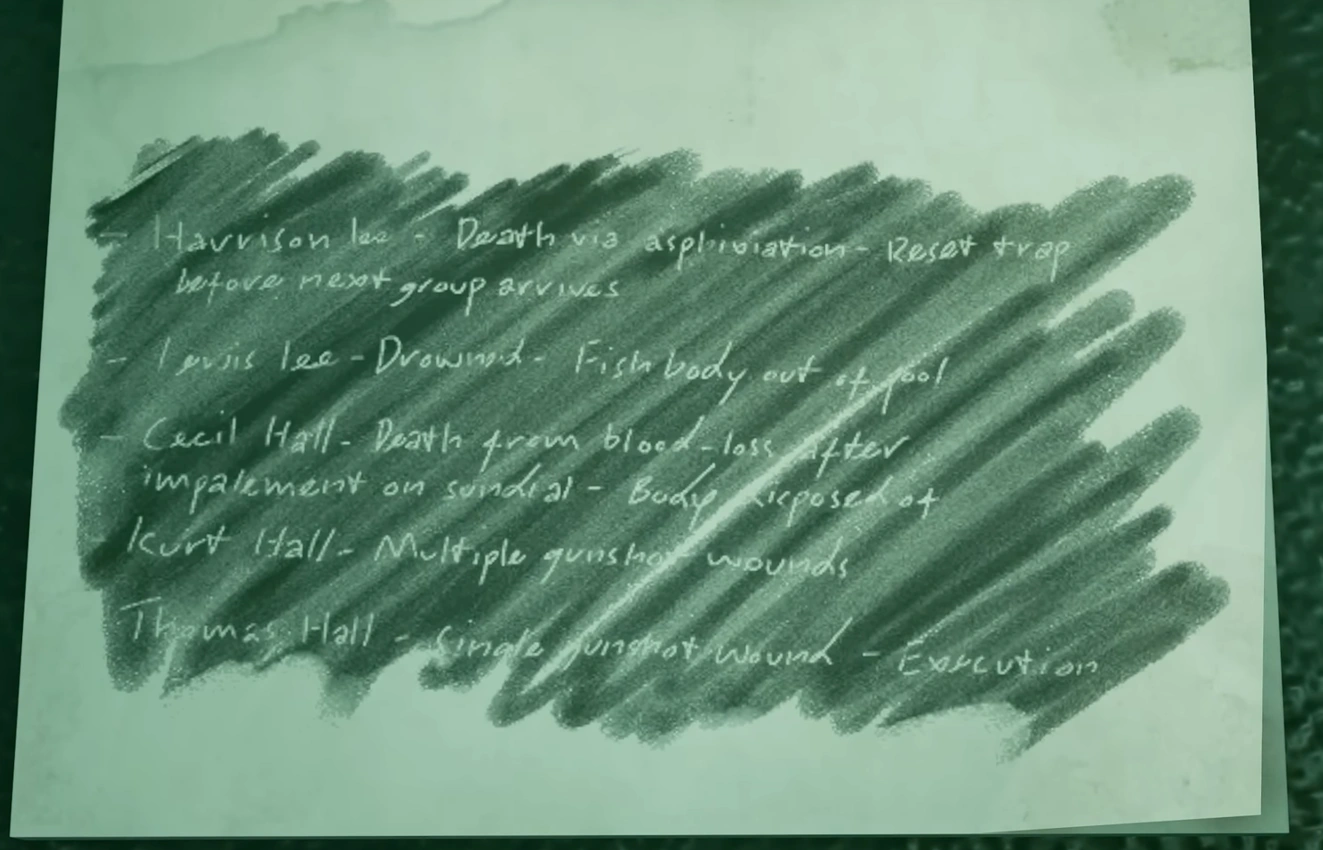 - Harrison lee - Death via asphixiation - Reset trap
before next group arrives
- Lewis lee - Drowned - Fish body out of pool
- Cecil Hall - Death from blood-loss after
impalement on sundial - Body disposed of
Kurt Hall - Multiple gunshot wounds
Thomas Hall - Single gunshot wound - Execution